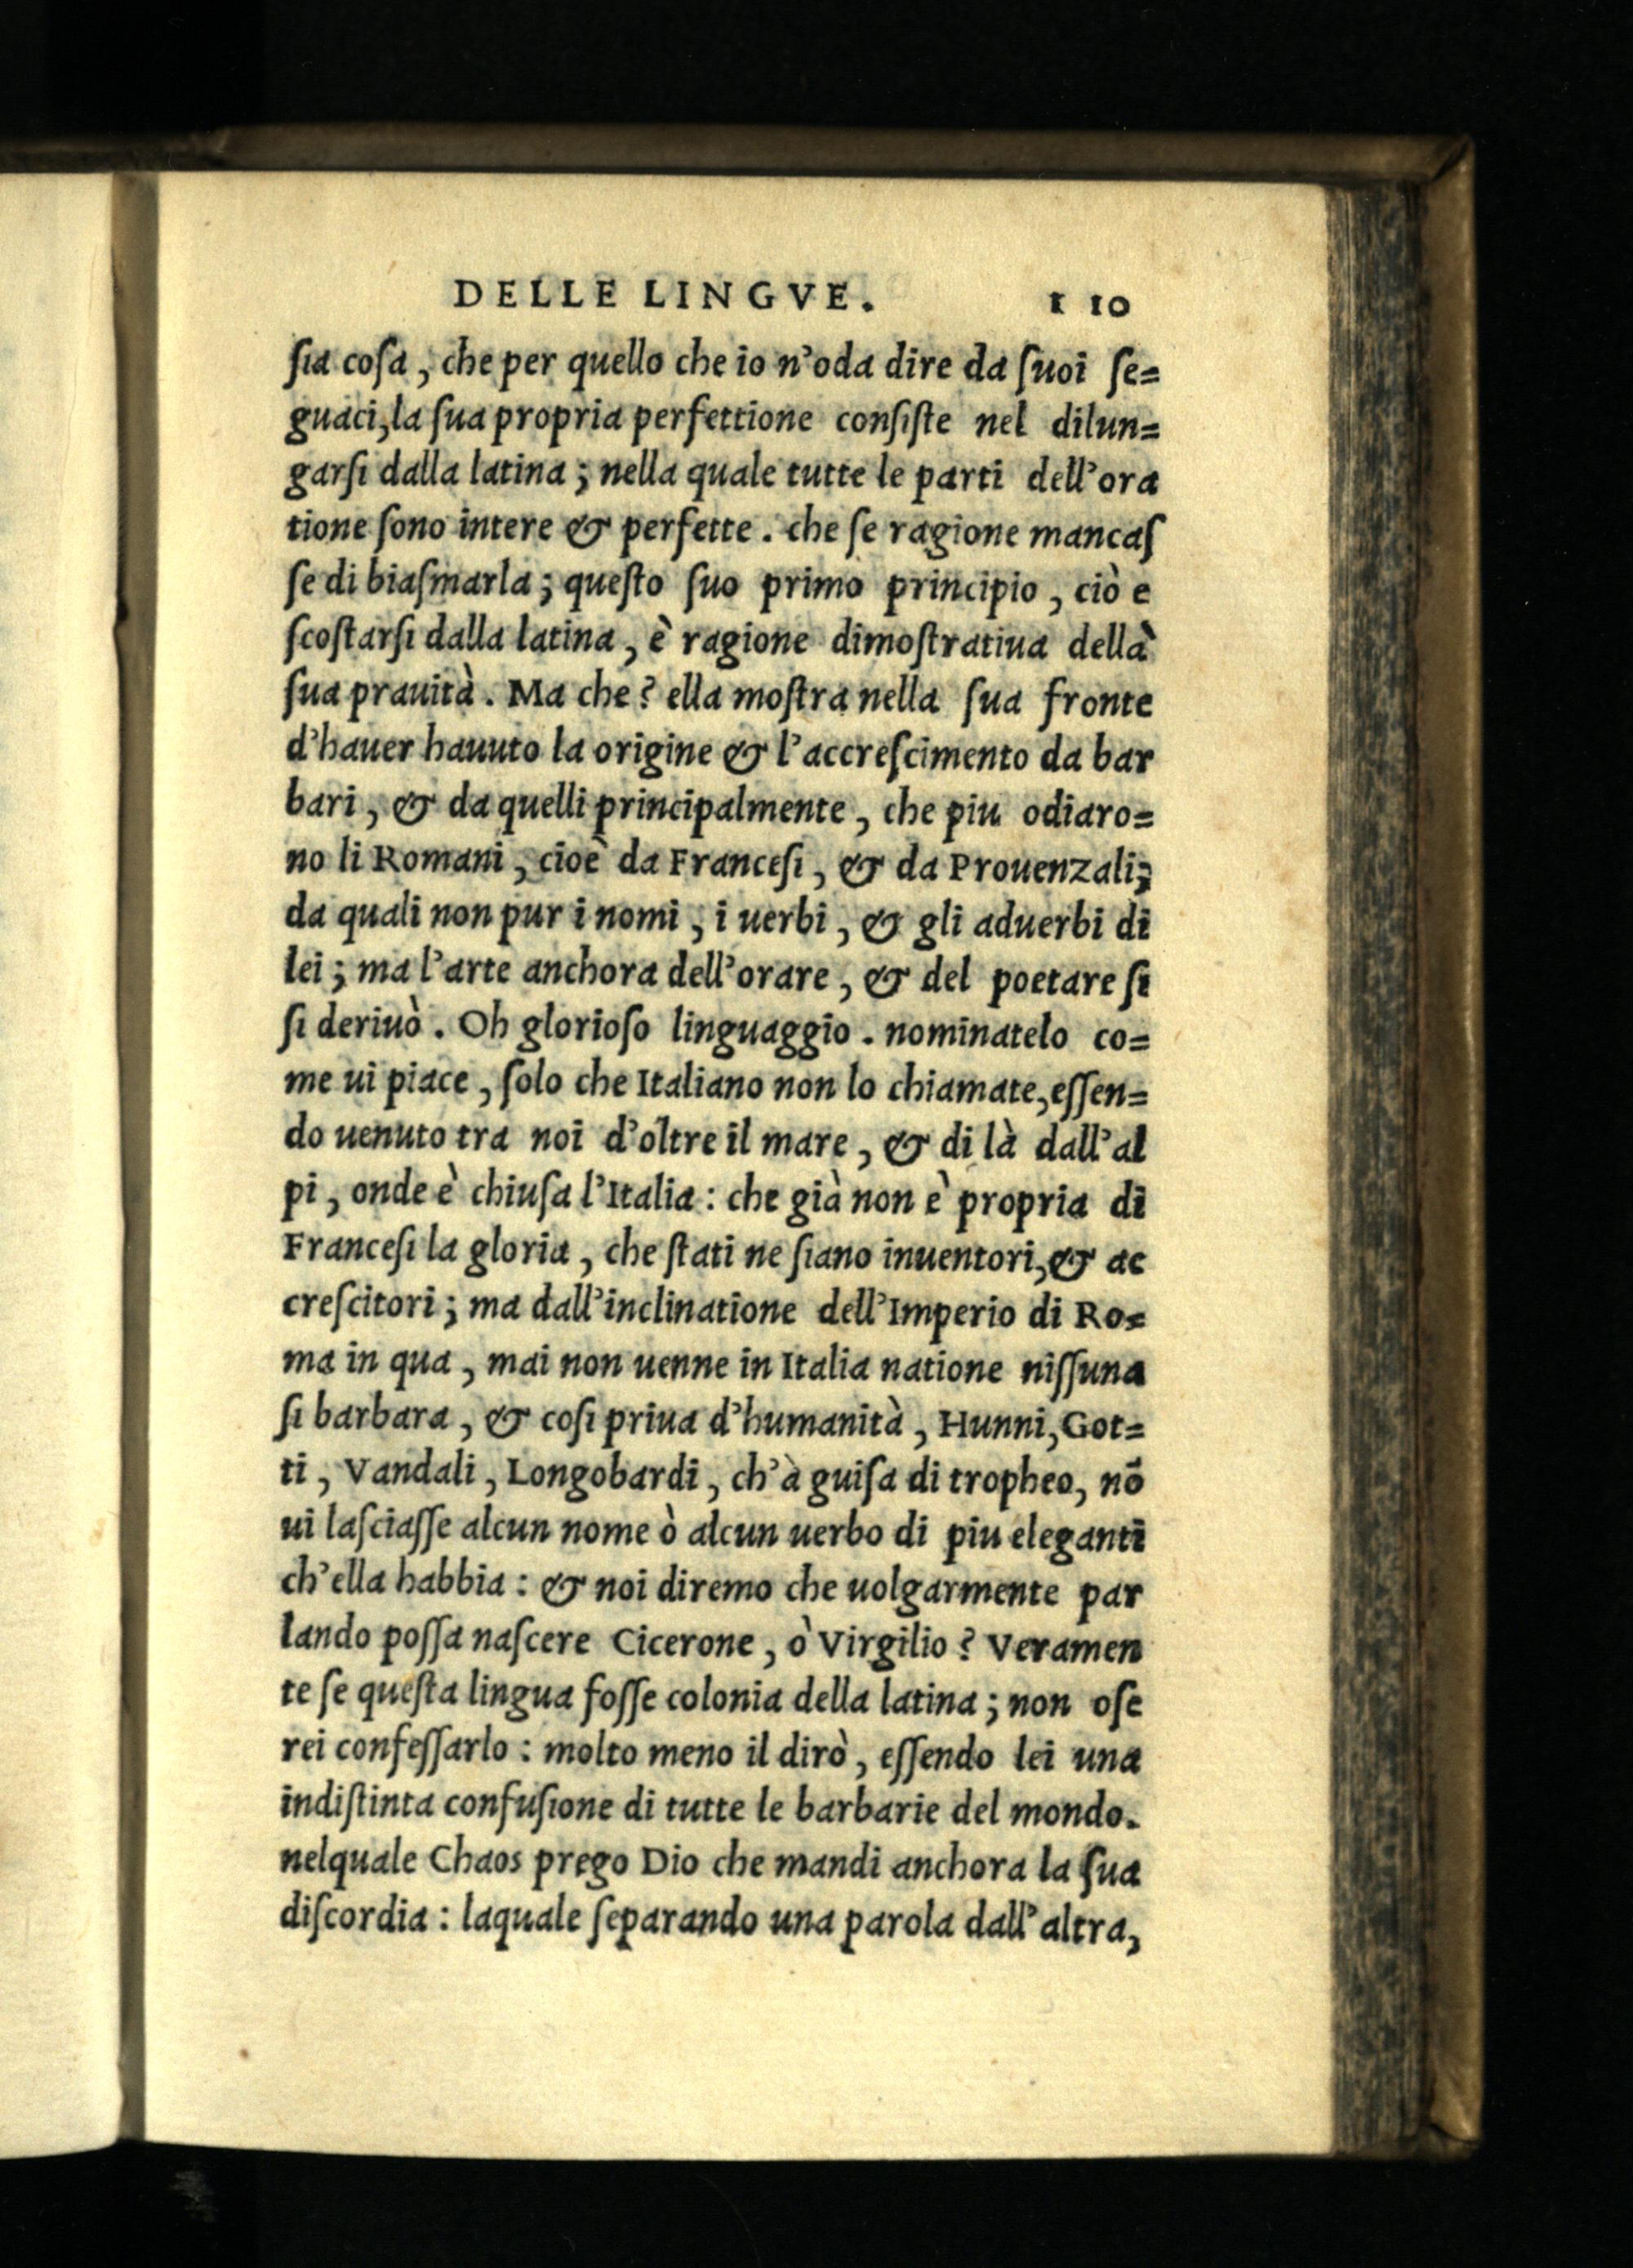 DELLE LINGVE. 110
ſia coſa, che per quello che io n'oda dire da ſuoi ſe=
guaci, la ſua propria perfettione conſiſte nel dilun=
garſi dalla latina; nella quale tutte le parti dell'ora
tione ſono intere & perfette. che ſe ragione mancaſ
ſe di biaſmarla; queſto ſuo primo principio, ciò e
ſcoſtarſi dalla latina, è ragione dimoſtratiua dellà
ſua prauità. Ma che? ella moſtra nella ſua fronte
d'hauer hauuto la origine & l'accreſcimento da bar
bari, & da quelli principalmente, che piu odiaro=
no li Romani, cioè da Franceſi, & da Prouenzali;
da quali non pur i nomi, i uerbi, & gli aduerbi di
lei; ma l'arte anchora dell'orare, & del poetare ſi
ſi deriuò. Oh glorioſo linguaggio. nominatelo co=
me ui piace, ſolo che Italiano non lo chiamate, eſſen=
do uenuto tra noi d'oltre il mare, & di là dall'al
pi, onde è chiuſa l'Italia: che già non è propria di
Franceſi la gloria, che ſtati ne ſiano inuentori, & ac
creſcitori; ma dall'inclinatione dell'Imperio di Ro=
ma in qua, mai non uenne in Italia natione niſſuna
ſi barbara, & coſi priua d'humanità, Hunni, Got=
ti, Vandali, Longobardi, ch'à guiſa di tropheo, nō
ui laſciaſſe alcun nome ò alcun uerbo di piu eleganti
ch'ella habbia: & noi diremo che uolgarmente par
lando poſſa naſcere Cicerone, ò Virgilio? Veramen
te ſe queſta lingua foſſe colonia della latina; non oſe
rei confeſſarlo: molto meno il dirò, eſſendo lei una
indiſtinta confuſione di tutte le barbarie del mondo.
nelquale Chaos prego Dio che mandi anchora la ſua
diſcordia: laquale ſeparando una parola dall'altra,